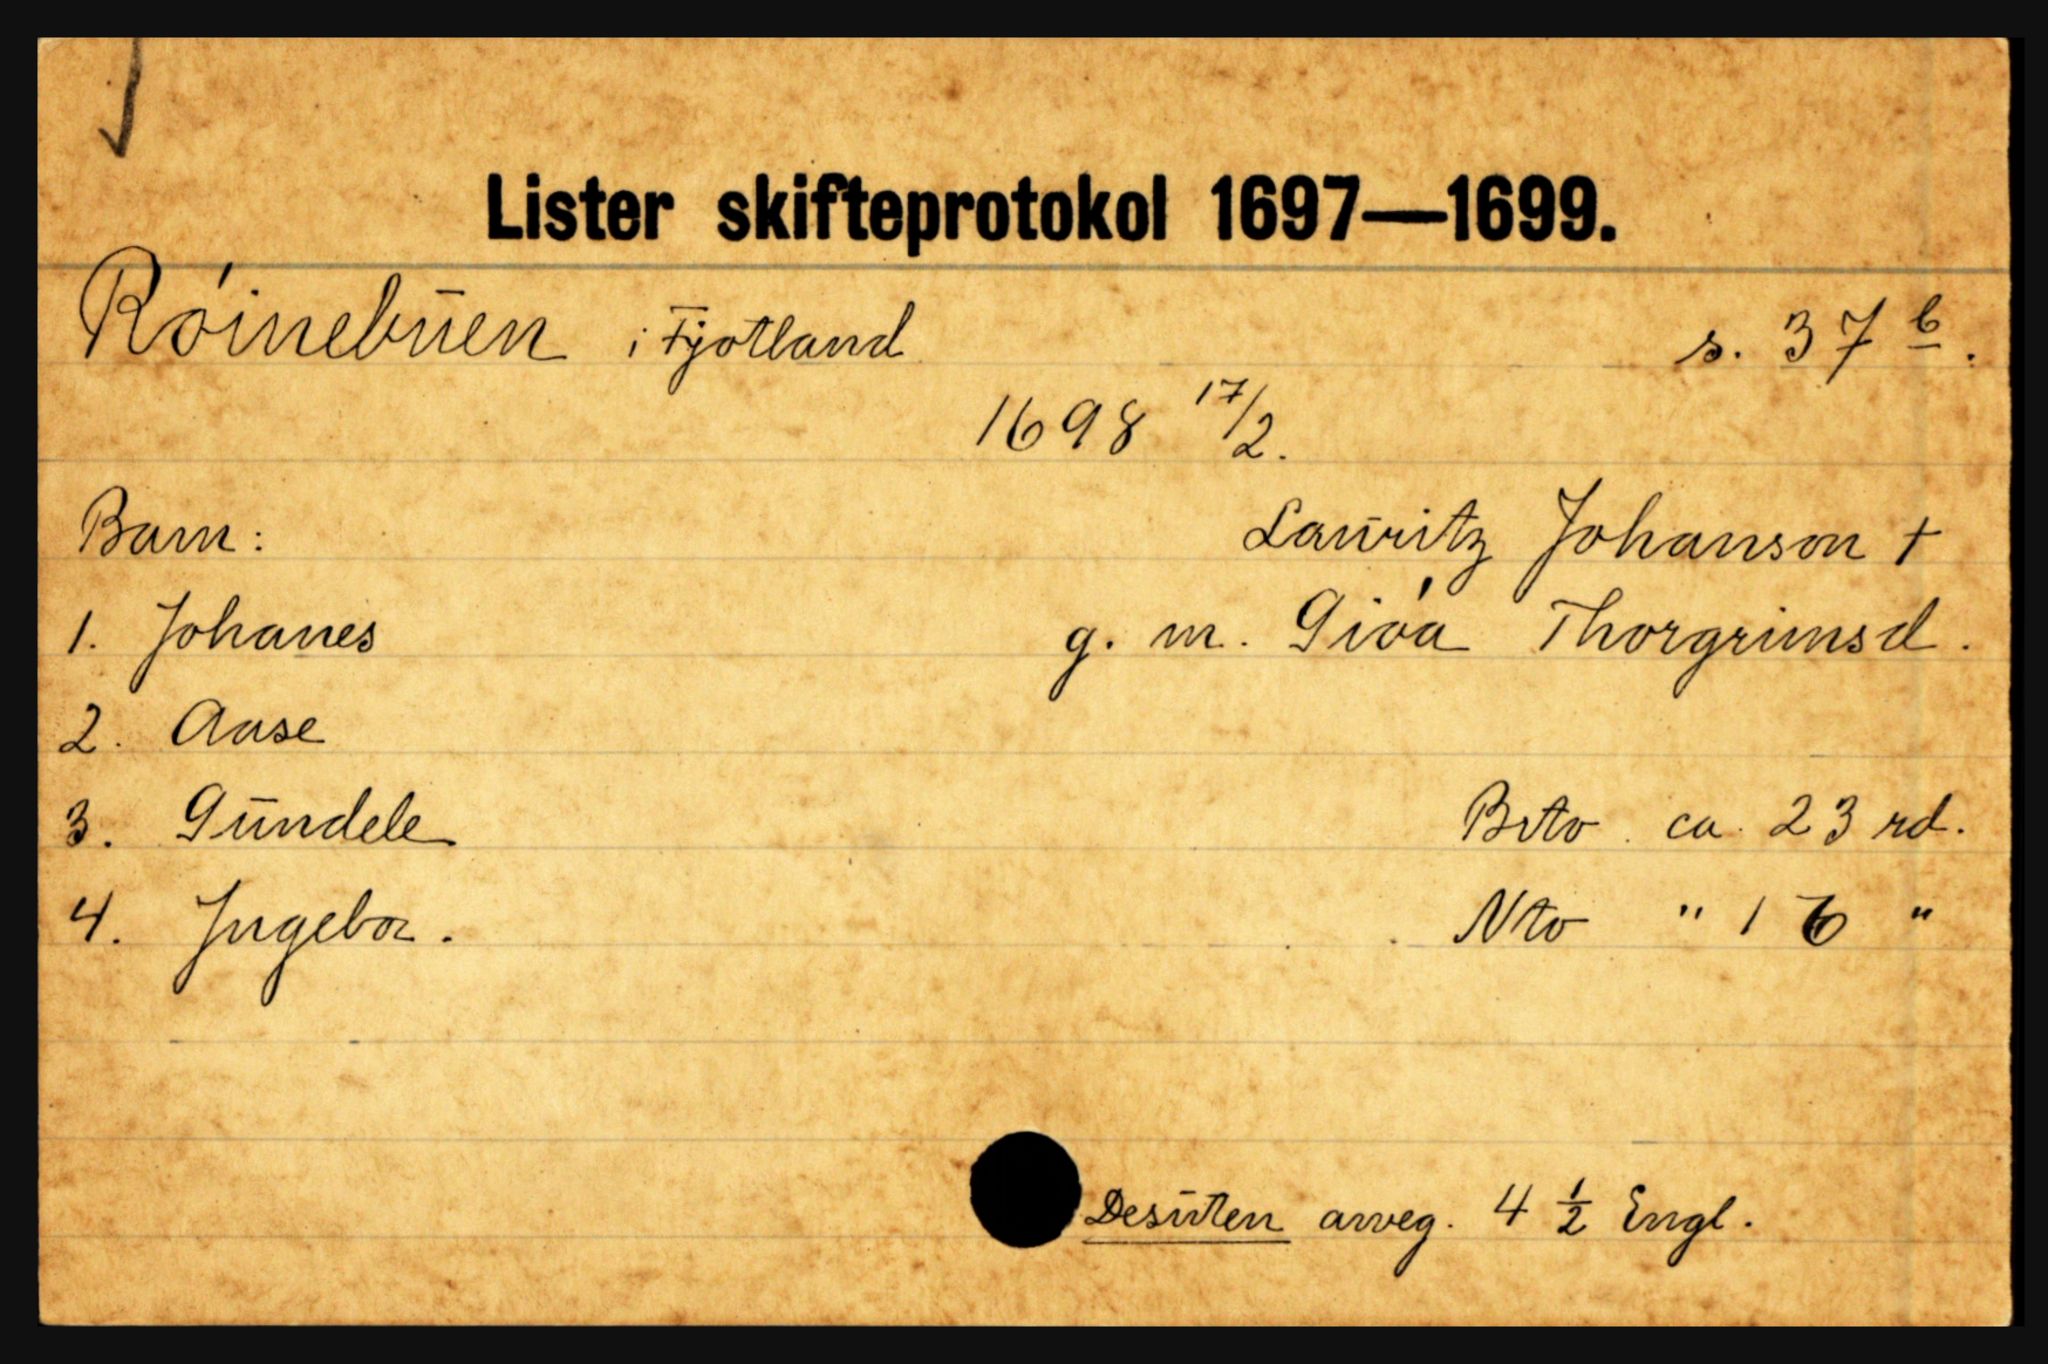 Lister skifteprotokol 1697—1699.
Røinebuen i Fjotland s. 37 b.
1698 17/2.
Barn: Lauritz Johanson †
1. Johanes g. m. Giøa Thorgrimsd.
2. Aase
3. Gundele Brto ca. 23 rd.
4. Ingebor. Nto " 16 "
Desuten arveg. 4 1/2 Engl.